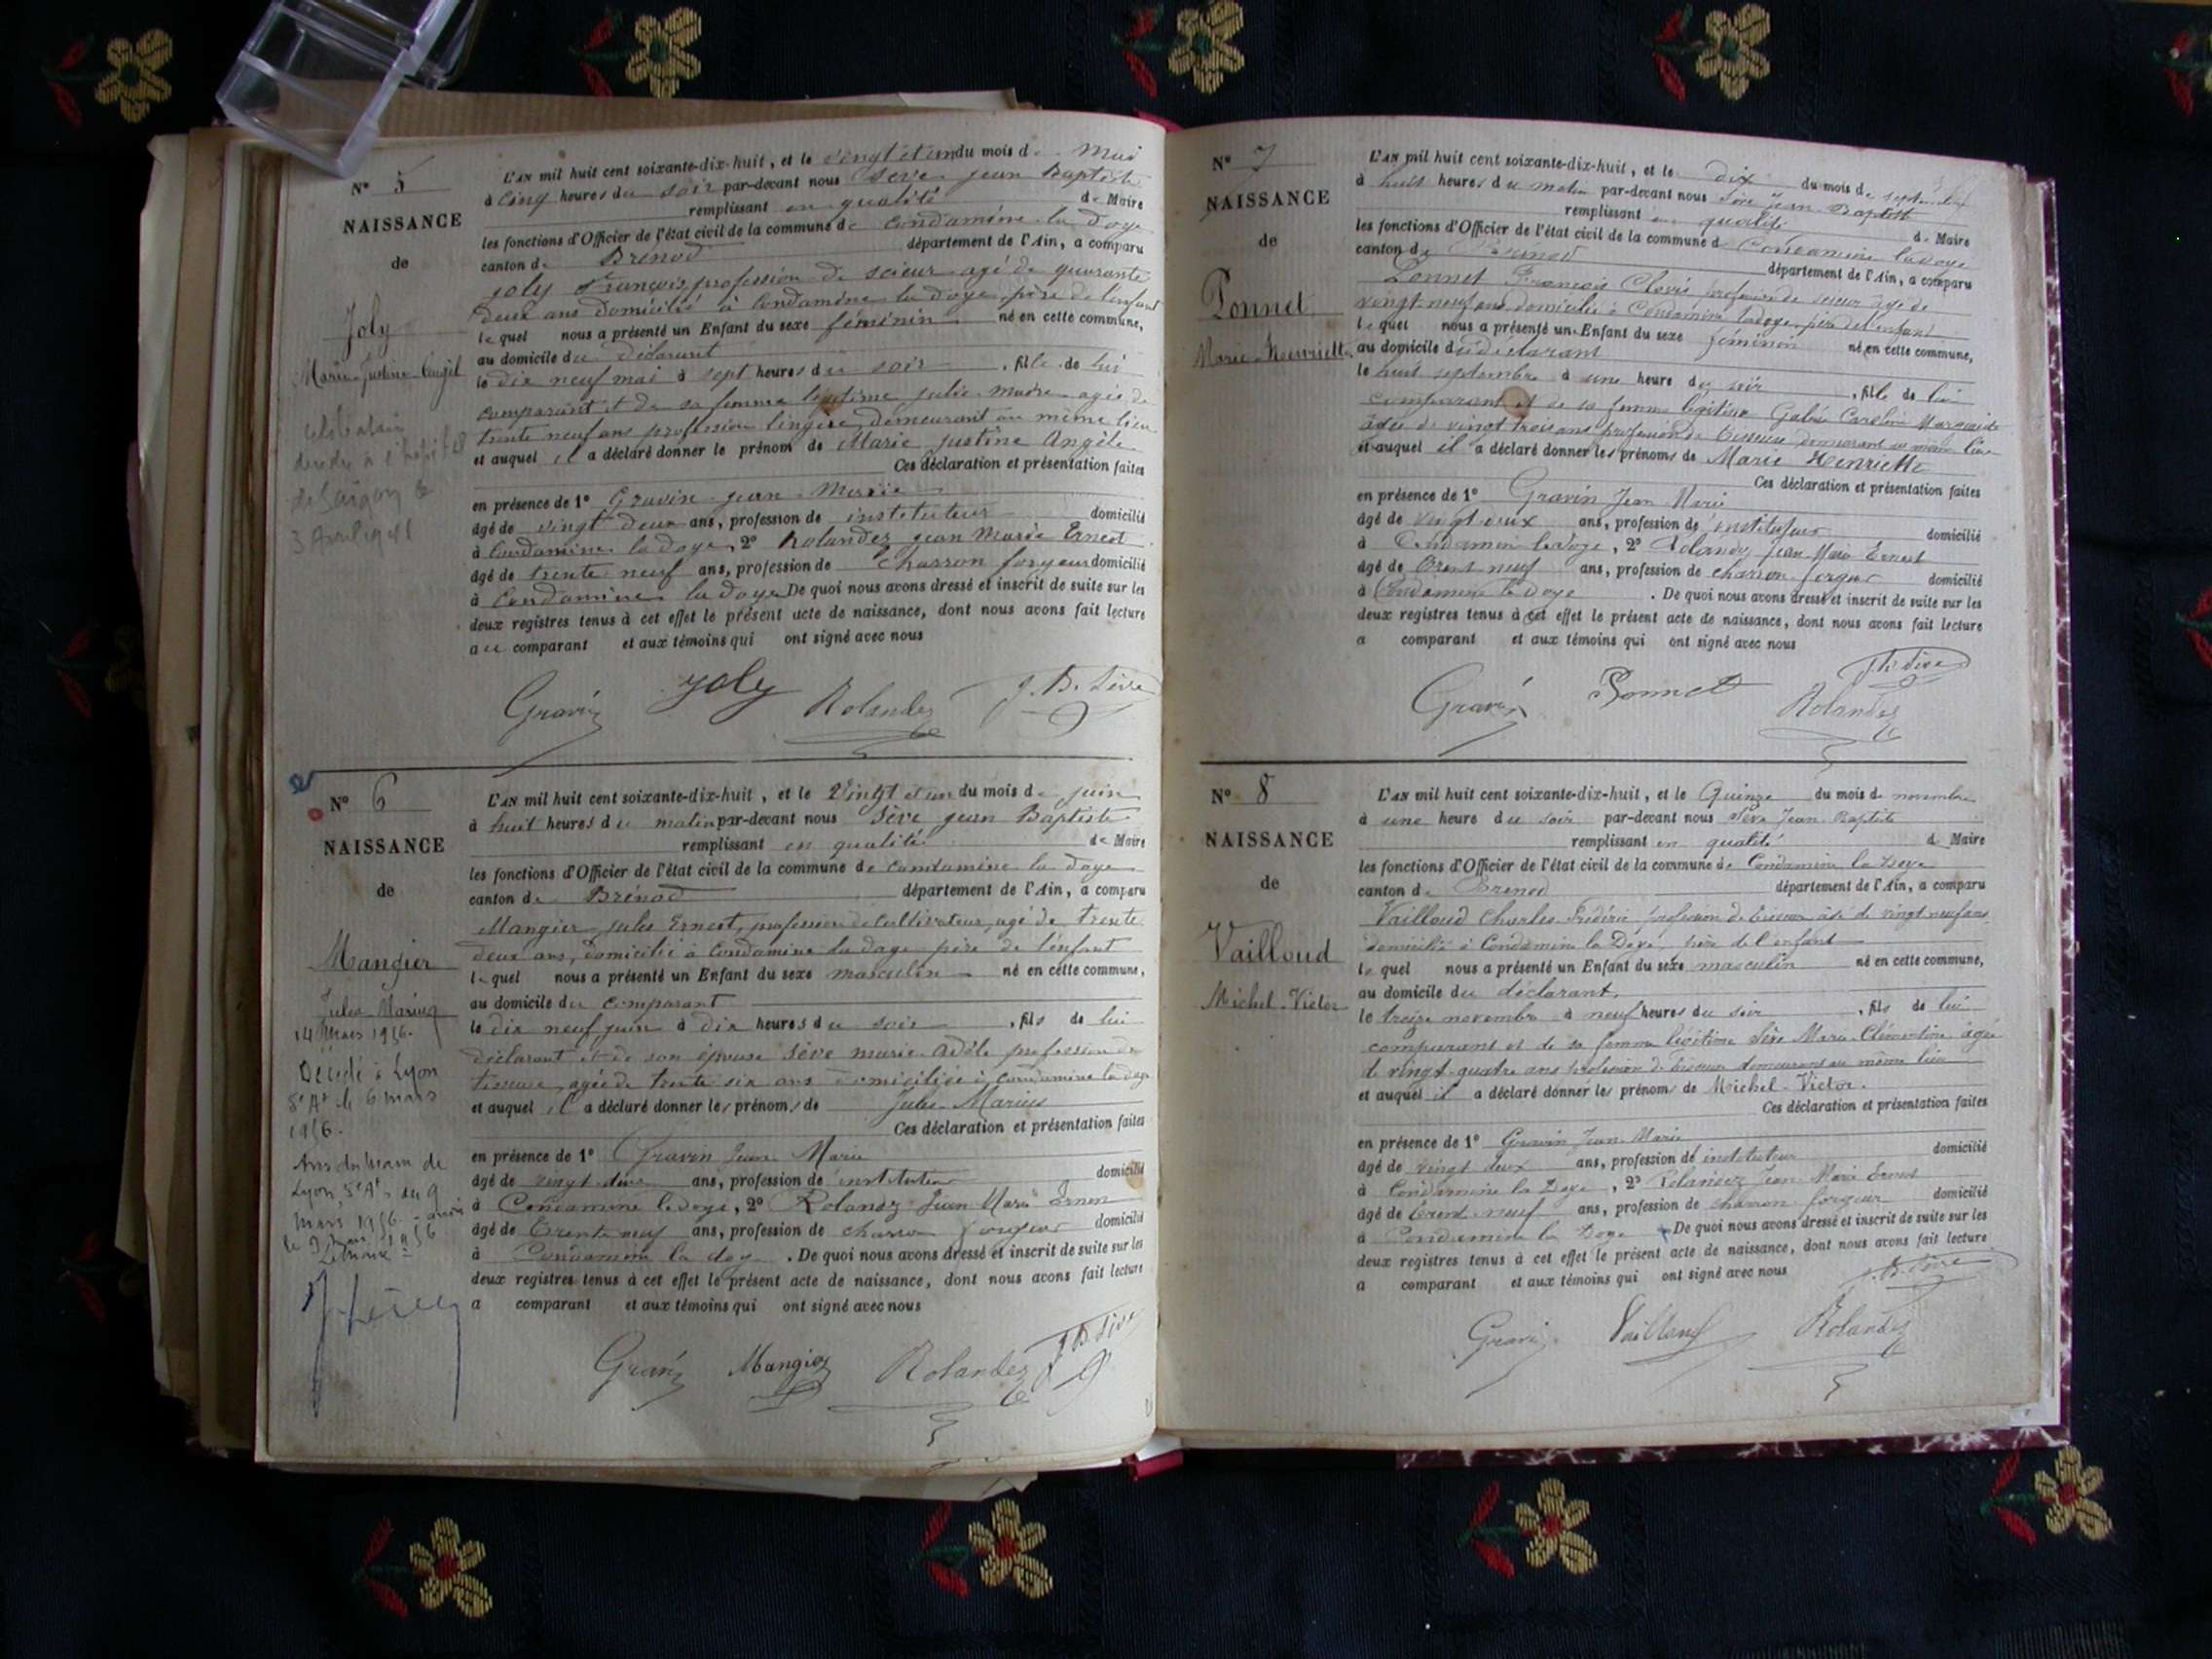 N° 5
NAISSANCE
de
Joly
Marie-Justine-Angèl
décédée à l'hôpital
de Saigon le
L'AN mil huit cent soixante-dix-huit, et le vingt et un du mois de Mai
à cinq heures du soir par-devant nous Sève jean Baptiste
remplissant en qualité de Maire
les fonctions d'Officier de l'état civil de la commune de Condamine la Doye
canton de Brénod département de l'Ain, a comparu
joly François, profession de scieur agé de quarante
deux ans domicilié à Condamine la Doye père de l'enfant
lequel nous a présenté un Enfant du sexe féminin né en cette commune,
au domicile du déclarant
le dix neuf mai à sept heures du soir, fille de lui
comparant et de sa femme légitime julie agée de
trente neuf ans profession lingère demeurant au même lieu
et auquel il a déclaré donner le prénom de Marie justine Angèle
Ces déclaration et présentation faites
en présence de 1° Gravin jean Marie
âgé de vingt deux ans, profession de instituteur domicilié
à Condamine la doye, 2° Rolandez jean Marie Ernest
âgé de trente neuf ans, profession de charron forgeur domicilié
à Condamine la doye De quoi nous avons dressé et inscrit de suite sur les
deux registres tenus à cet effet le présent acte de naissance, dont nous avons fait lecture
au comparant et aux témoins qui ont signé avec nous
Gravin joly Rolandez J. B. Sève
N° 6
NAISSANCE
de
Mangier
Jules Marius
14 Mars 1956.
Décédé à Lyon
5e At le 6 mars
1956.
Avis du Maire de
Lyon 5e At du 9
mars 1956
L'AN mil huit cent soixante-dix-huit, et le vingt et un du mois de juin
à huit heures du matin par-devant nous Sève jean Baptiste
remplissant en qualité de Maire
les fonctions d'Officier de l'état civil de la commune de Condamine la doye
canton de Brénod département de l'Ain, a comparu
Mangier jules Ernest, profession de cultivateur, agé de trente
deux ans, domicilié à Condamine la doye père de l'enfant
lequel nous a présenté un Enfant du sexe masculin né en cette commune,
au domicile du comparant
le dix neuf juin à dix heures du soir, fils de lui
déclarant et de son épouse Sève marie Adèle profession de
tisseuse, agée de trente six ans domiciliée à Condamine la doye
et auquel il a déclaré donner les prénoms de Jules Marius
Ces déclaration et présentation faites
en présence de 1° Gravin Jean Marie
âgé de vingt deux ans, profession de instituteur domicilié
à Condamine la doye, 2° Rolandez Jean Marie Ernest
âgé de trente neuf ans, profession de charron forgeur domicilié
à Condamine la doye. De quoi nous avons dressé et inscrit de suite sur les
deux registres tenus à cet effet le présent acte de naissance, dont nous avons fait lecture
a comparant et aux témoins qui ont signé avec nous
Gravin Mangier Rolandez J B Sève
N° 7
NAISSANCE
de
Ponnet
Marie-Henriette
L'AN mil huit cent soixante-dix-huit, et le dix du mois de septembre
à huit heures du matin par-devant nous Sève Jean Baptiste
remplissant en qualité de Maire
les fonctions d'Officier de l'état civil de la commune de Condamine la doye
canton de Brénod département de l'Ain, a comparu
Ponnet François Clovis profession de scieur âgé de
vingt-neuf ans domicilié à Condamine ladoye, père de l'enfant
lequel nous a présenté un Enfant du sexe féminin né en cette commune,
au domicile du déclarant
le huit septembre à une heure du soir, fille de lui
comparant et de sa femme légitime Caroline
âgée de vingt trois ans profession de tisseuse demeurant au même lieu
et auquel il a déclaré donner les prénoms de Marie Henriette
Ces déclaration et présentation faites
en présence de 1° Gravin Jean Marie
âgé de vingt deux ans, profession de instituteur domicilié
à Condamine ladoye, 2° Rolandez Jean-Marie Ernest
âgé de trente neuf ans, profession de charron forgeur domicilié
à Condamine la Doye. De quoi nous avons dressé et inscrit de suite sur les
deux registres tenus à cet effet le présent acte de naissance, dont nous avons fait lecture
a comparant et aux témoins qui ont signé avec nous
Gravin Ponnet Rolandez J. B. Sève
N° 8
NAISSANCE
de
Vailloud
Michel-Victor
L'AN mil huit cent soixante-dix-huit, et le Quinze du mois de novembre
à une heure du soir par-devant nous Sève Jean Baptiste
remplissant en qualité de Maire
les fonctions d'Officier de l'état civil de la commune de Condamine la Doye
canton de Brénod département de l'Ain, a comparu
Vailloud Charles Frédéric profession de tisseur âgé de vingt neuf ans
domicilié à Condamine la Doye, père de l'enfant
lequel nous a présenté un Enfant du sexe masculin né en cette commune,
au domicile du déclarant,
le treize novembre à neuf heures du soir, fils de lui
comparant et de sa femme légitime Sève Marie Clémentine âgée
de vingt-quatre ans profession de tisseuse demeurant au même lieu
et auquel il a déclaré donner les prénoms de Michel-Victor.
Ces déclaration et présentation faites
en présence de 1° Gravin Jean Marie
âgé de vingt deux ans, profession de instituteur domicilié
à Condamine la Doye, 2° Rolandez Jean Marie Ernest
âgé de trente neuf ans, profession de charron forgeur domicilié
à Condamine la Doye De quoi nous avons dressé et inscrit de suite sur les
deux registres tenus à cet effet le présent acte de naissance, dont nous avons fait lecture
a comparant et aux témoins qui ont signé avec nous
Gravin Vailloud Rolandez J. B. Sève